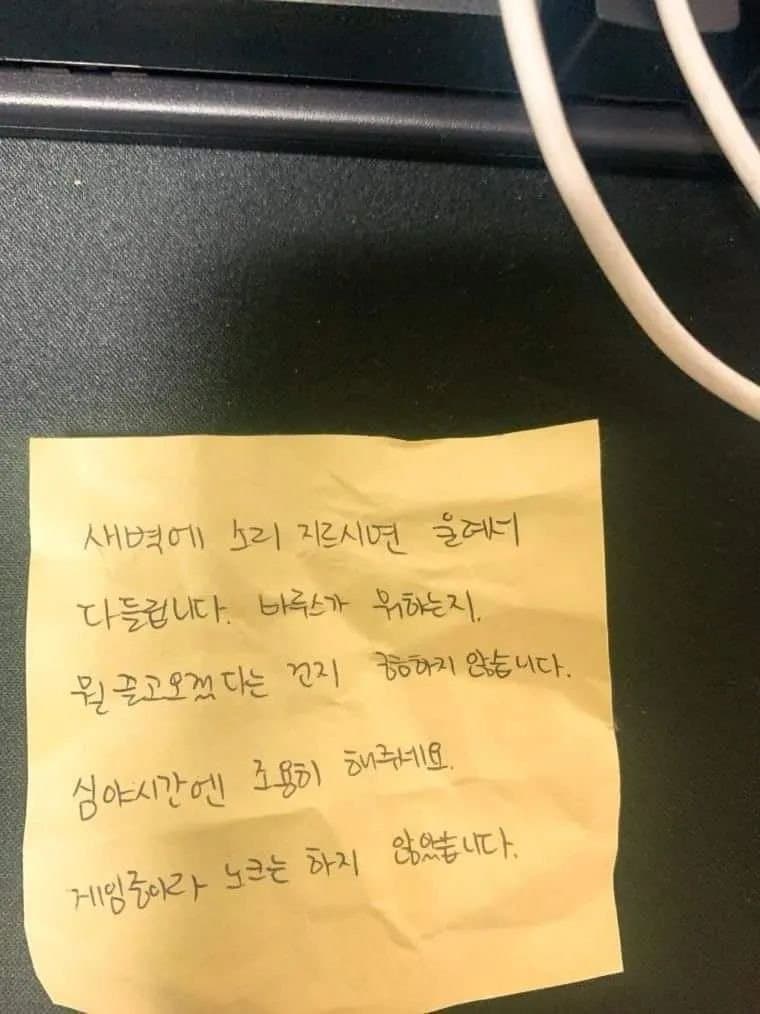 새벽에 소리 지르시면 옆에서
다들립니다. 바루스가 뭐하는지,
뭘 끌고오겠다는 건지 궁금하지 않습니다.
심야시간엔 조용히 해주세요.
게임중이라 노크는 하지 않았습니다.